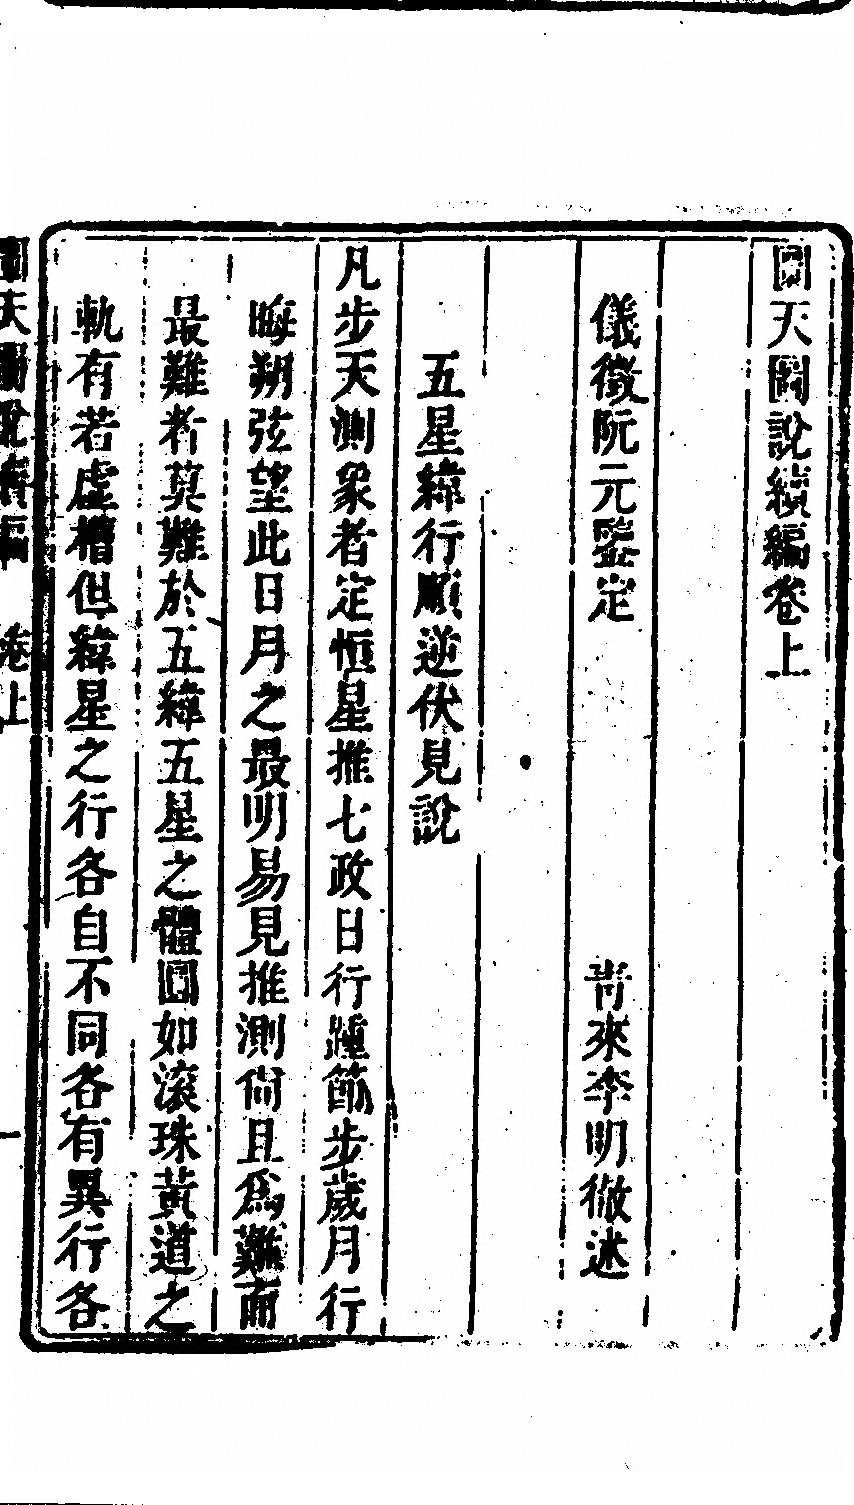 圜天圖說續編卷上
儀徵阮元鑒定 青來李明徹述
五星緯行順逆伏見說
凡步天測象者定恒星推七政日行躔節步歲月行
晦朔弦望此日月之最明易見推測尚且為難而
最難者莫難於五緯五星之體圓如滾珠黃道之
軌有若虛槽但緯星之行各自不同各有異行各
圜天圖說續編 卷上 一